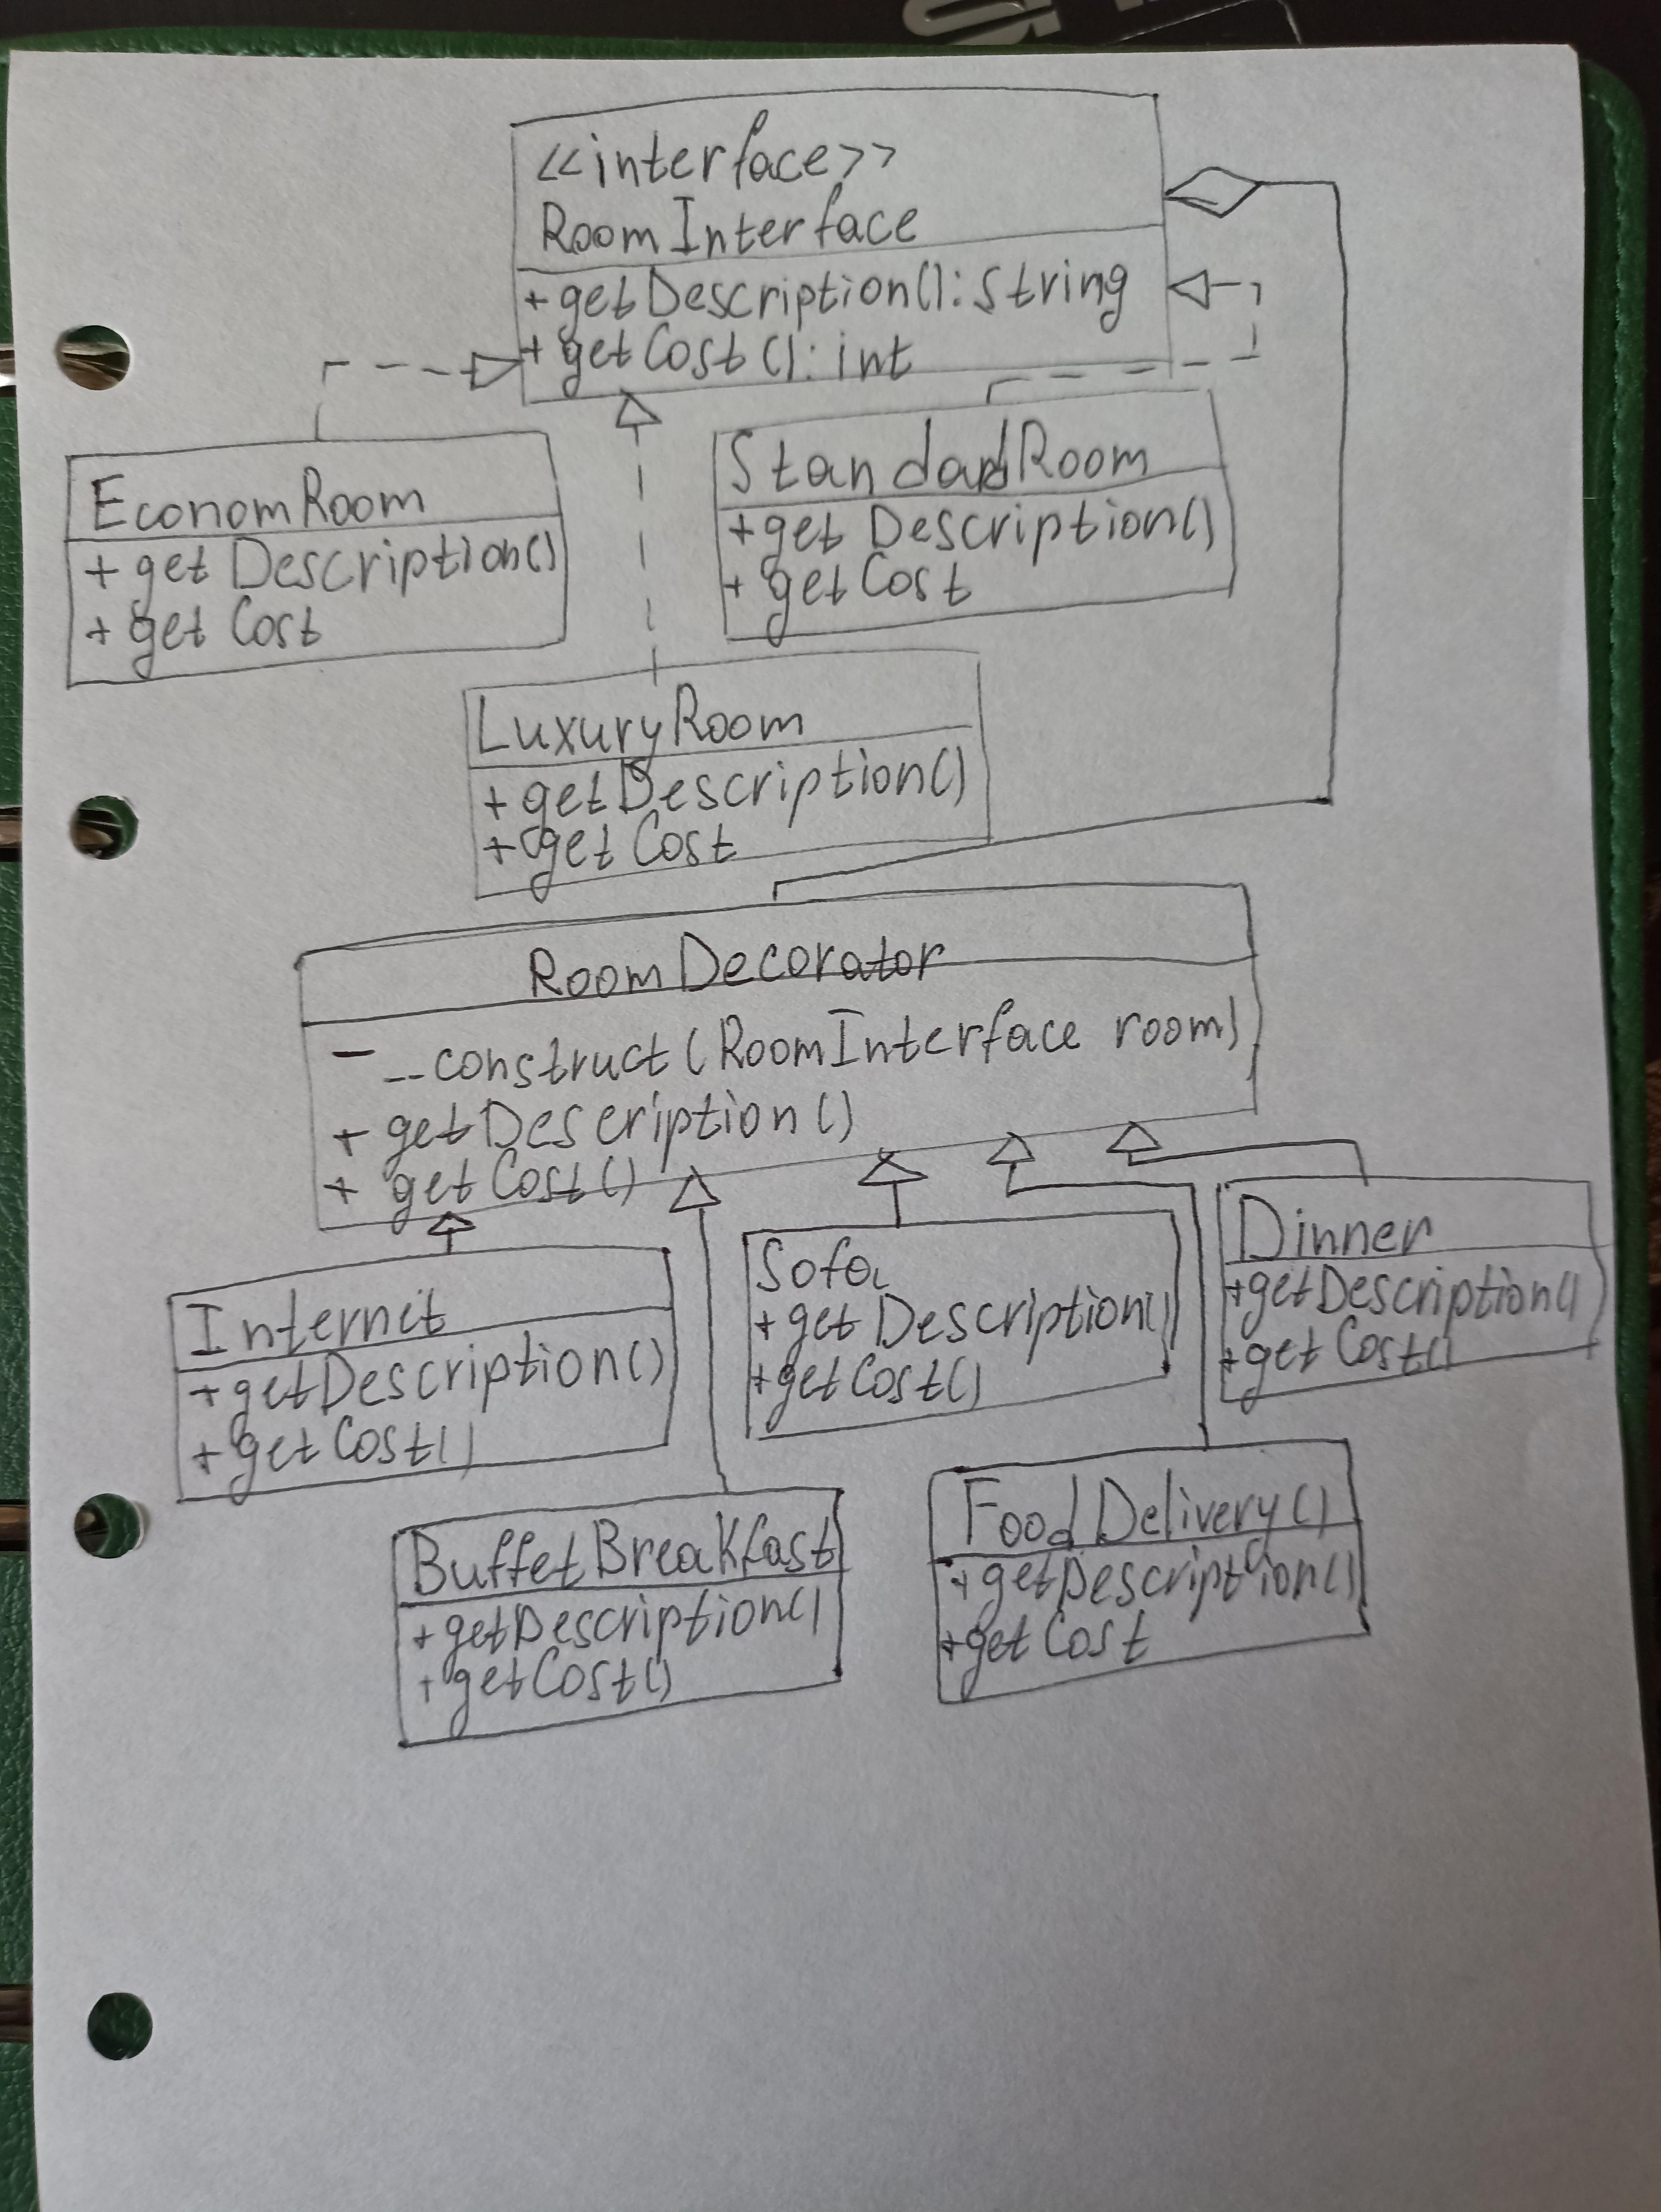 <<interface>>
RoomInterface
+getDescription():String
+getCost():int
EconomRoom
+getDescription()
+getCost
StandardRoom
+getDescription()
+getCost
LuxuryRoom
+getDescription()
+getCost
RoomDecorator
- __construct(RoomInterface room)
+ getDescription()
+ getCost()
Internet
+getDescription()
+getCost()
Sofa
+getDescription()
+getCost()
Dinner
+getDescription()
+getCost()
BuffetBreakfast
+getDescription()
+getCost()
FoodDelivery()
+getDescription()
+getCost